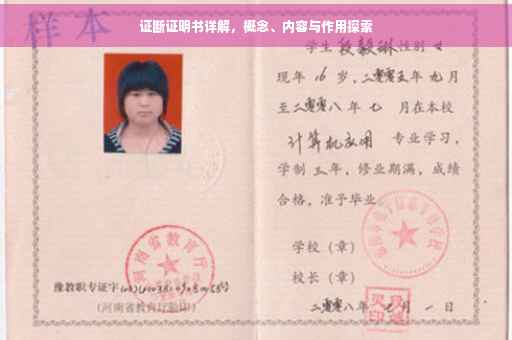 证断证明书详解，概念、内容与作用探索
样本
学生段毅琳性别女
现年16岁，二零零五年九月
至二零零八年七月在本校
计算机应用专业学习，
学制三年，修业期满，成绩
合格，准予毕业。
学校（章）
校长（章）
二零零八年 月一日
河南省教育厅
豫教职专证字
（河南省教育厅验印）